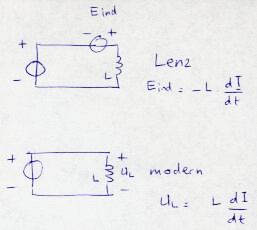 Eind
+ - +
-
L
Lenz
Eind = -L dI/dt
+ +
L UL
- -
modern
UL = L dI/dt